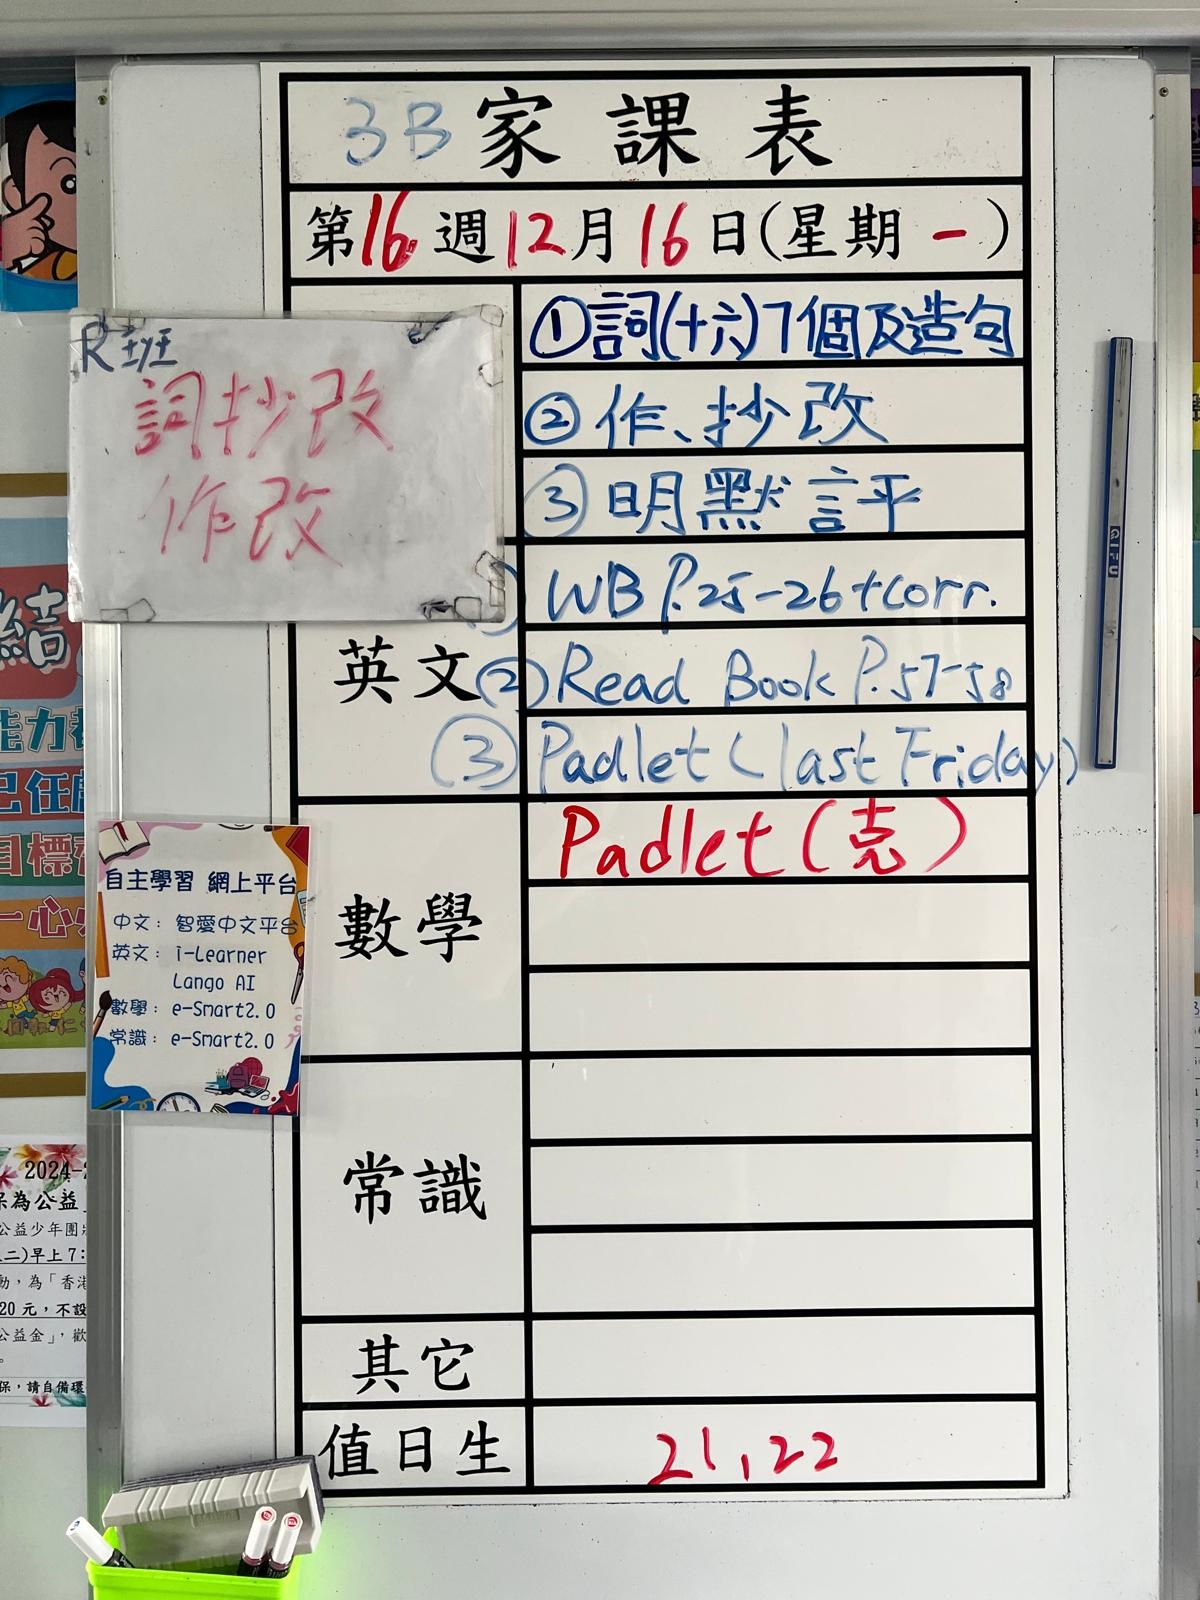 3B 家課表
第16週12月16日(星期一)
R班
詞抄改
作改
①詞(十六)7個及造句
②作、抄改
③明默詞評
英文
WB P.25-26+corr.
(2) Read Book P.57-58
(3) Padlet (last Friday)
數學
Padlet (克)
常識
其它
值日生
21,22
自主學習 網上平台
中文：智愛中文平台
英文：i-Learner
Lango AI
數學：e-Smart2.0
常識：e-Smart2.0
結
能力
己任
目標
一心
2024-
保為公益
公益少年團
二)早上7:
動，為「香港
20 元，不設
公益金」，歡
保，請自備環